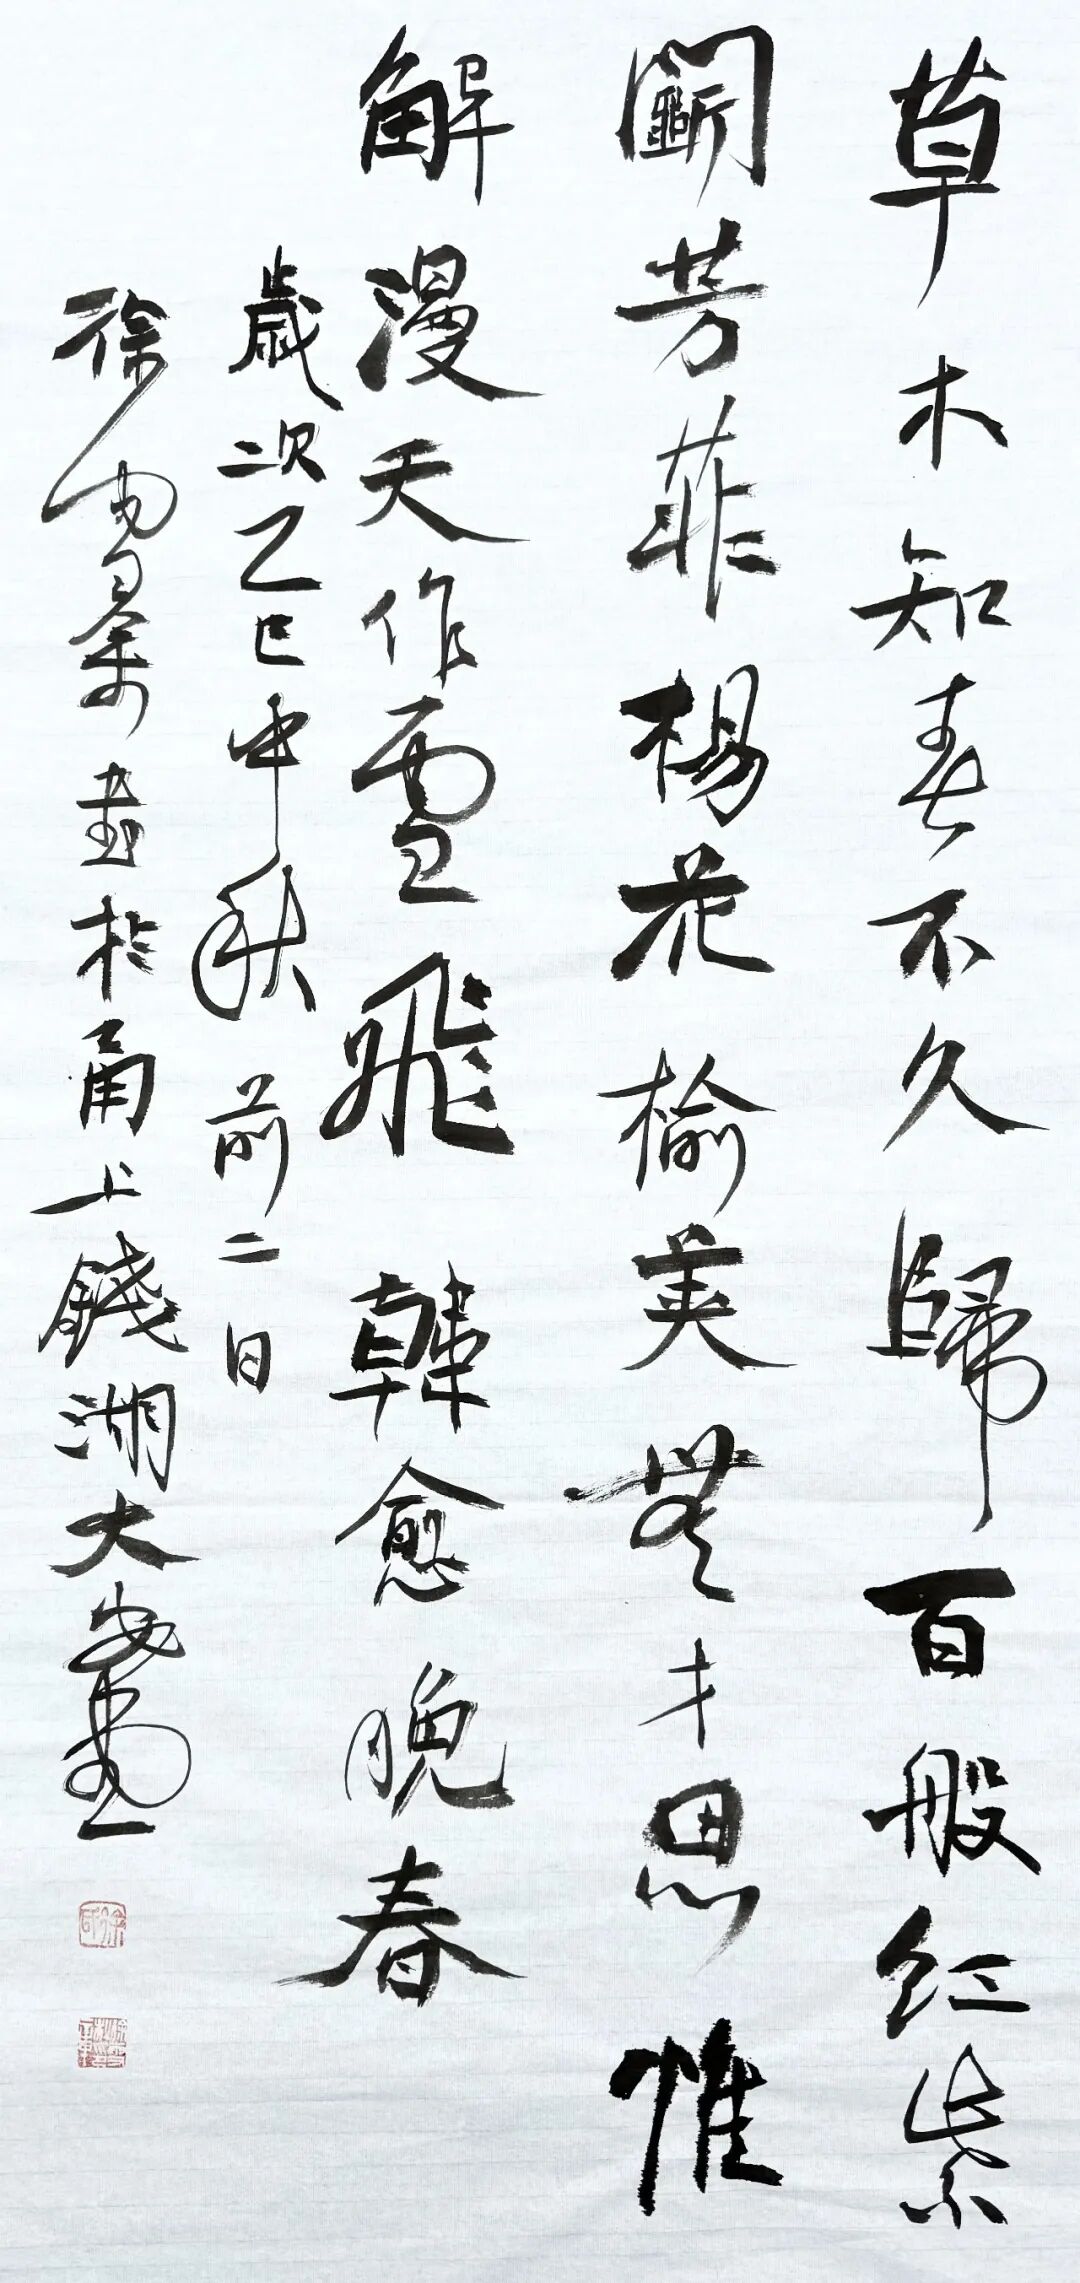 草木知春不久歸百般紅紫
鬭芳菲楊花榆莢無才思惟
解漫天作雪飛韓愈晚春
歲次乙巳中秋前二日
徐 書於甬上錢湖大